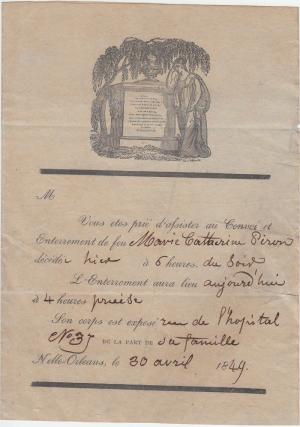 M
Vous etes prié d'assister au Convoi et
Enterrement de feu Marie Catherine Péron
décédée hier à 6 heures du Soir
L'Enterrement aura lieu aujourd'hui
à 4 heures précise
Son corps est exposé rue de l'hopital
No 37 DE LA PART DE sa famille
Nelle-Orleans, le 30 avril 1849.